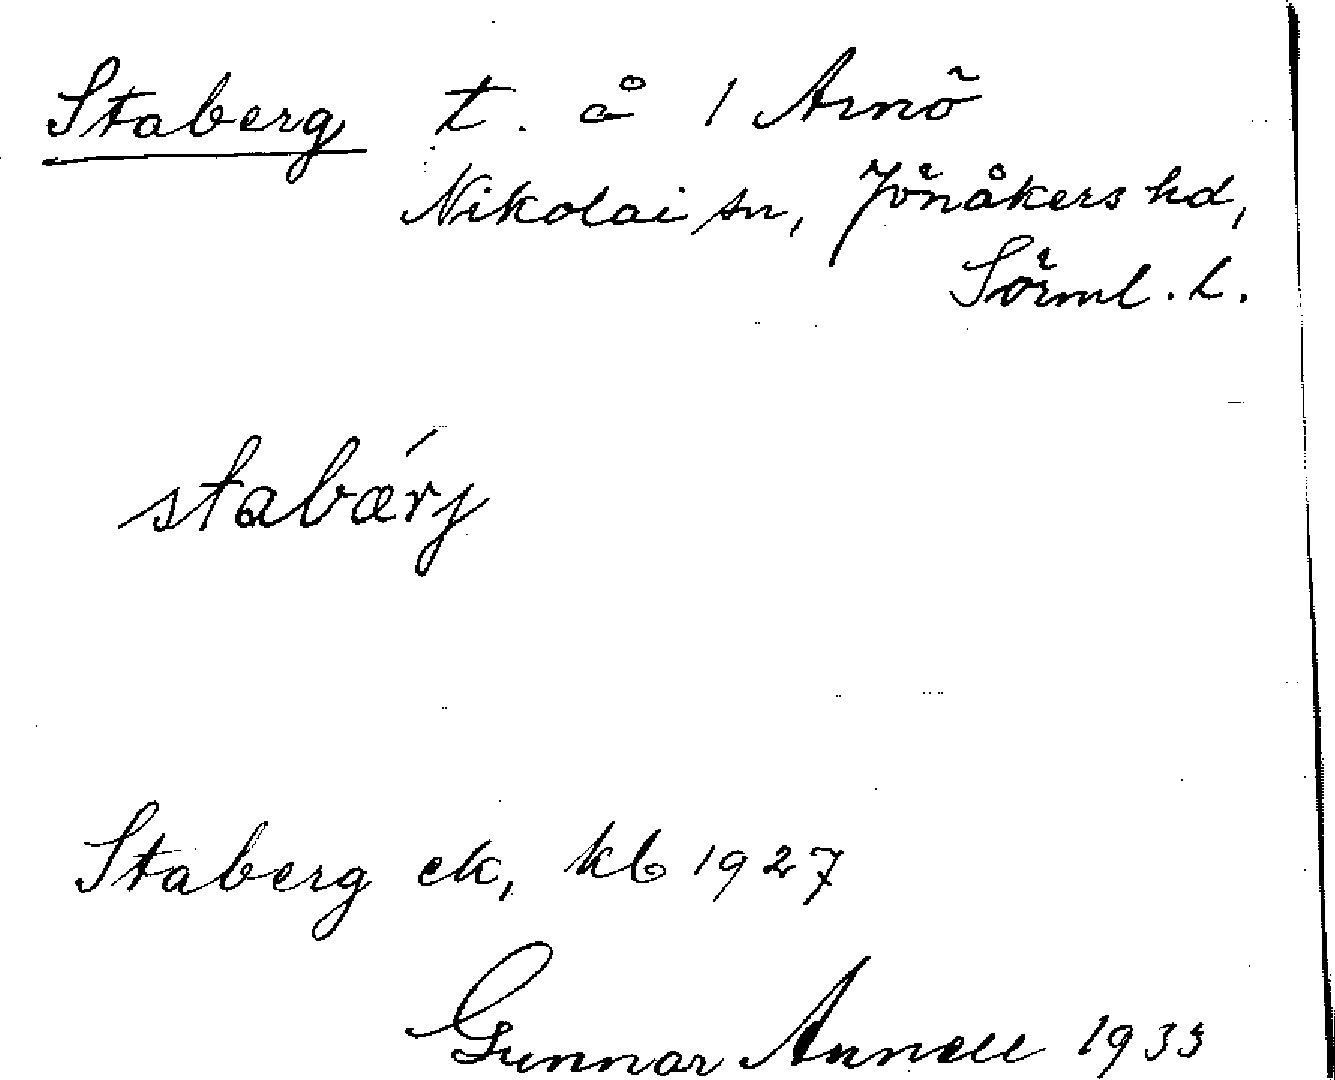 Staberg t. å 1 Arnö
Nikolai sn, Jönåkers hd,
Sörml. l.
stabærj́
Staberg ek, kb 1927
Gunnar Annell 1933